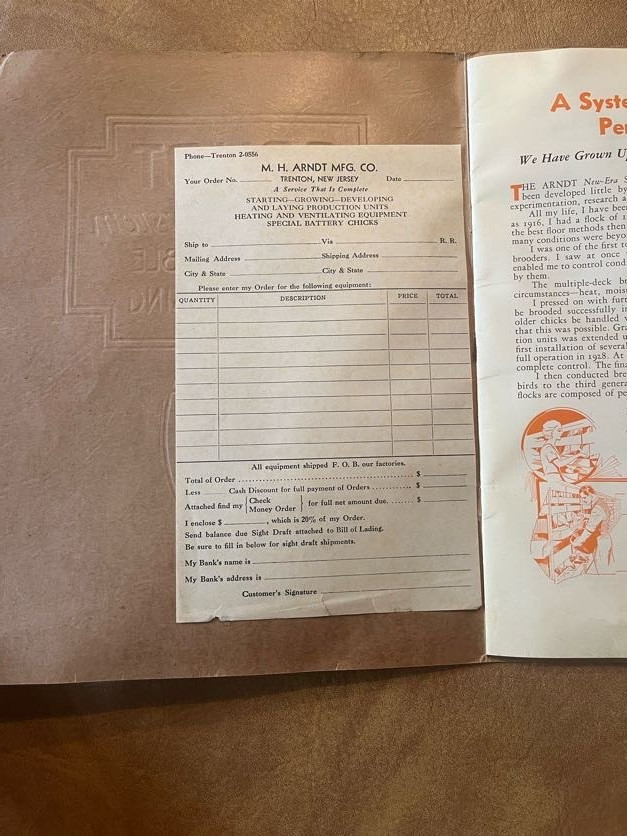 Phone—Trenton 2-0556
M. H. ARNDT MFG. CO.
Your Order No. TRENTON, NEW JERSEY Date
A Service That Is Complete
STARTING—GROWING—DEVELOPING
AND LAYING PRODUCTION UNITS
HEATING AND VENTILATING EQUIPMENT
SPECIAL BATTERY CHICKS
Ship to Via R. R.
Mailing Address Shipping Address
City & State City & State
Please enter my Order for the following equipment:
QUANTITY DESCRIPTION PRICE TOTAL
All equipment shipped F. O. B. our factories.
Total of Order $
Less Cash Discount for full payment of Orders $
Attached find my { Check Money Order } for full net amount due. $
I enclose $ , which is 20% of my Order.
Send balance due Sight Draft attached to Bill of Lading.
Be sure to fill in below for sight draft shipments.
My Bank's name is
My Bank's address is
Customer's Signature
A Syste
Per
We Have Grown U
THE ARNDT New-Era S
been developed little by
experimentation, research a
All my life, I have been
as 1916, I had a flock of
the best floor methods then
many conditions were beyo
I was one of the first to
brooders. I saw at once
enabled me to control cond
by them.
The multiple-deck br
circumstances—heat, mois
I pressed on with furt
be brooded successfully in
older chicks be handled
that this was possible. Gra
tion units was extended u
first installation of several
full operation in 1928. At
complete control. The fina
I then conducted bre
birds to the third genera
flocks are composed of pe